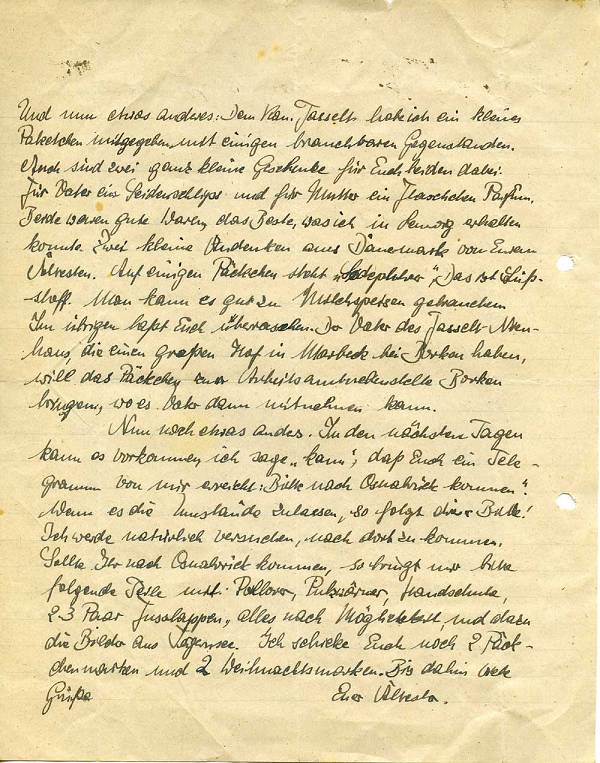 Und nun etwas anderes: Dem Kan. Tasselt habe ich ein kleines
Paketchen mitgegeben mit einigen brauchbaren Gegenständen.
Auch sind zwei ganz kleine Geschenke für Euch beiden dabei.
Für Vater ein Seidenschlips und für Mutter ein Fläschchen Parfüm.
Beide waren gute Waren, das Beste, was ich in erhalten
konnte. Zwei kleine Andenken aus Dänemark von Eurem
Ältesten. Auf einigen Päckchen steht „ ". Das ist Süß-
stoff. Man kann es gut zu Milchspeisen gebrauchen
Im übrigen laßt Euch überraschen. Der Vater des Tasselt-
haus, die einen großen Hof in Marbeck bei Borken haben,
will das Päckchen zur Arbeitsamtnebenstelle Borken
bringen, wo es Vater dann mitnehmen kann.
Nun noch etwas anders. In den nächsten Tagen
kann es vorkommen, ich sage „kann", daß Euch ein Tele-
gramm von mir erreicht: Bitte nach Osnabrück kommen".
Wenn es die Umstände zulassen, so folgt dieser Bitte!
Ich werde natürlich versuchen, nach dort zu kommen.
Sollte Ihr nach Osnabrück kommen, so bringt mir bitte
folgende Teile mit: Pullover, Pulswärmer, Handschuhe,
2-3 Paar Fusslappen, alles nach Möglichkeit, und dazu
die Bilder aus Tegernsee. Ich schicke Euch noch 2 Päck-
chenmarken und 2 Weihnachtsmarken. Bis dahin
Grüße Euer Ältester.